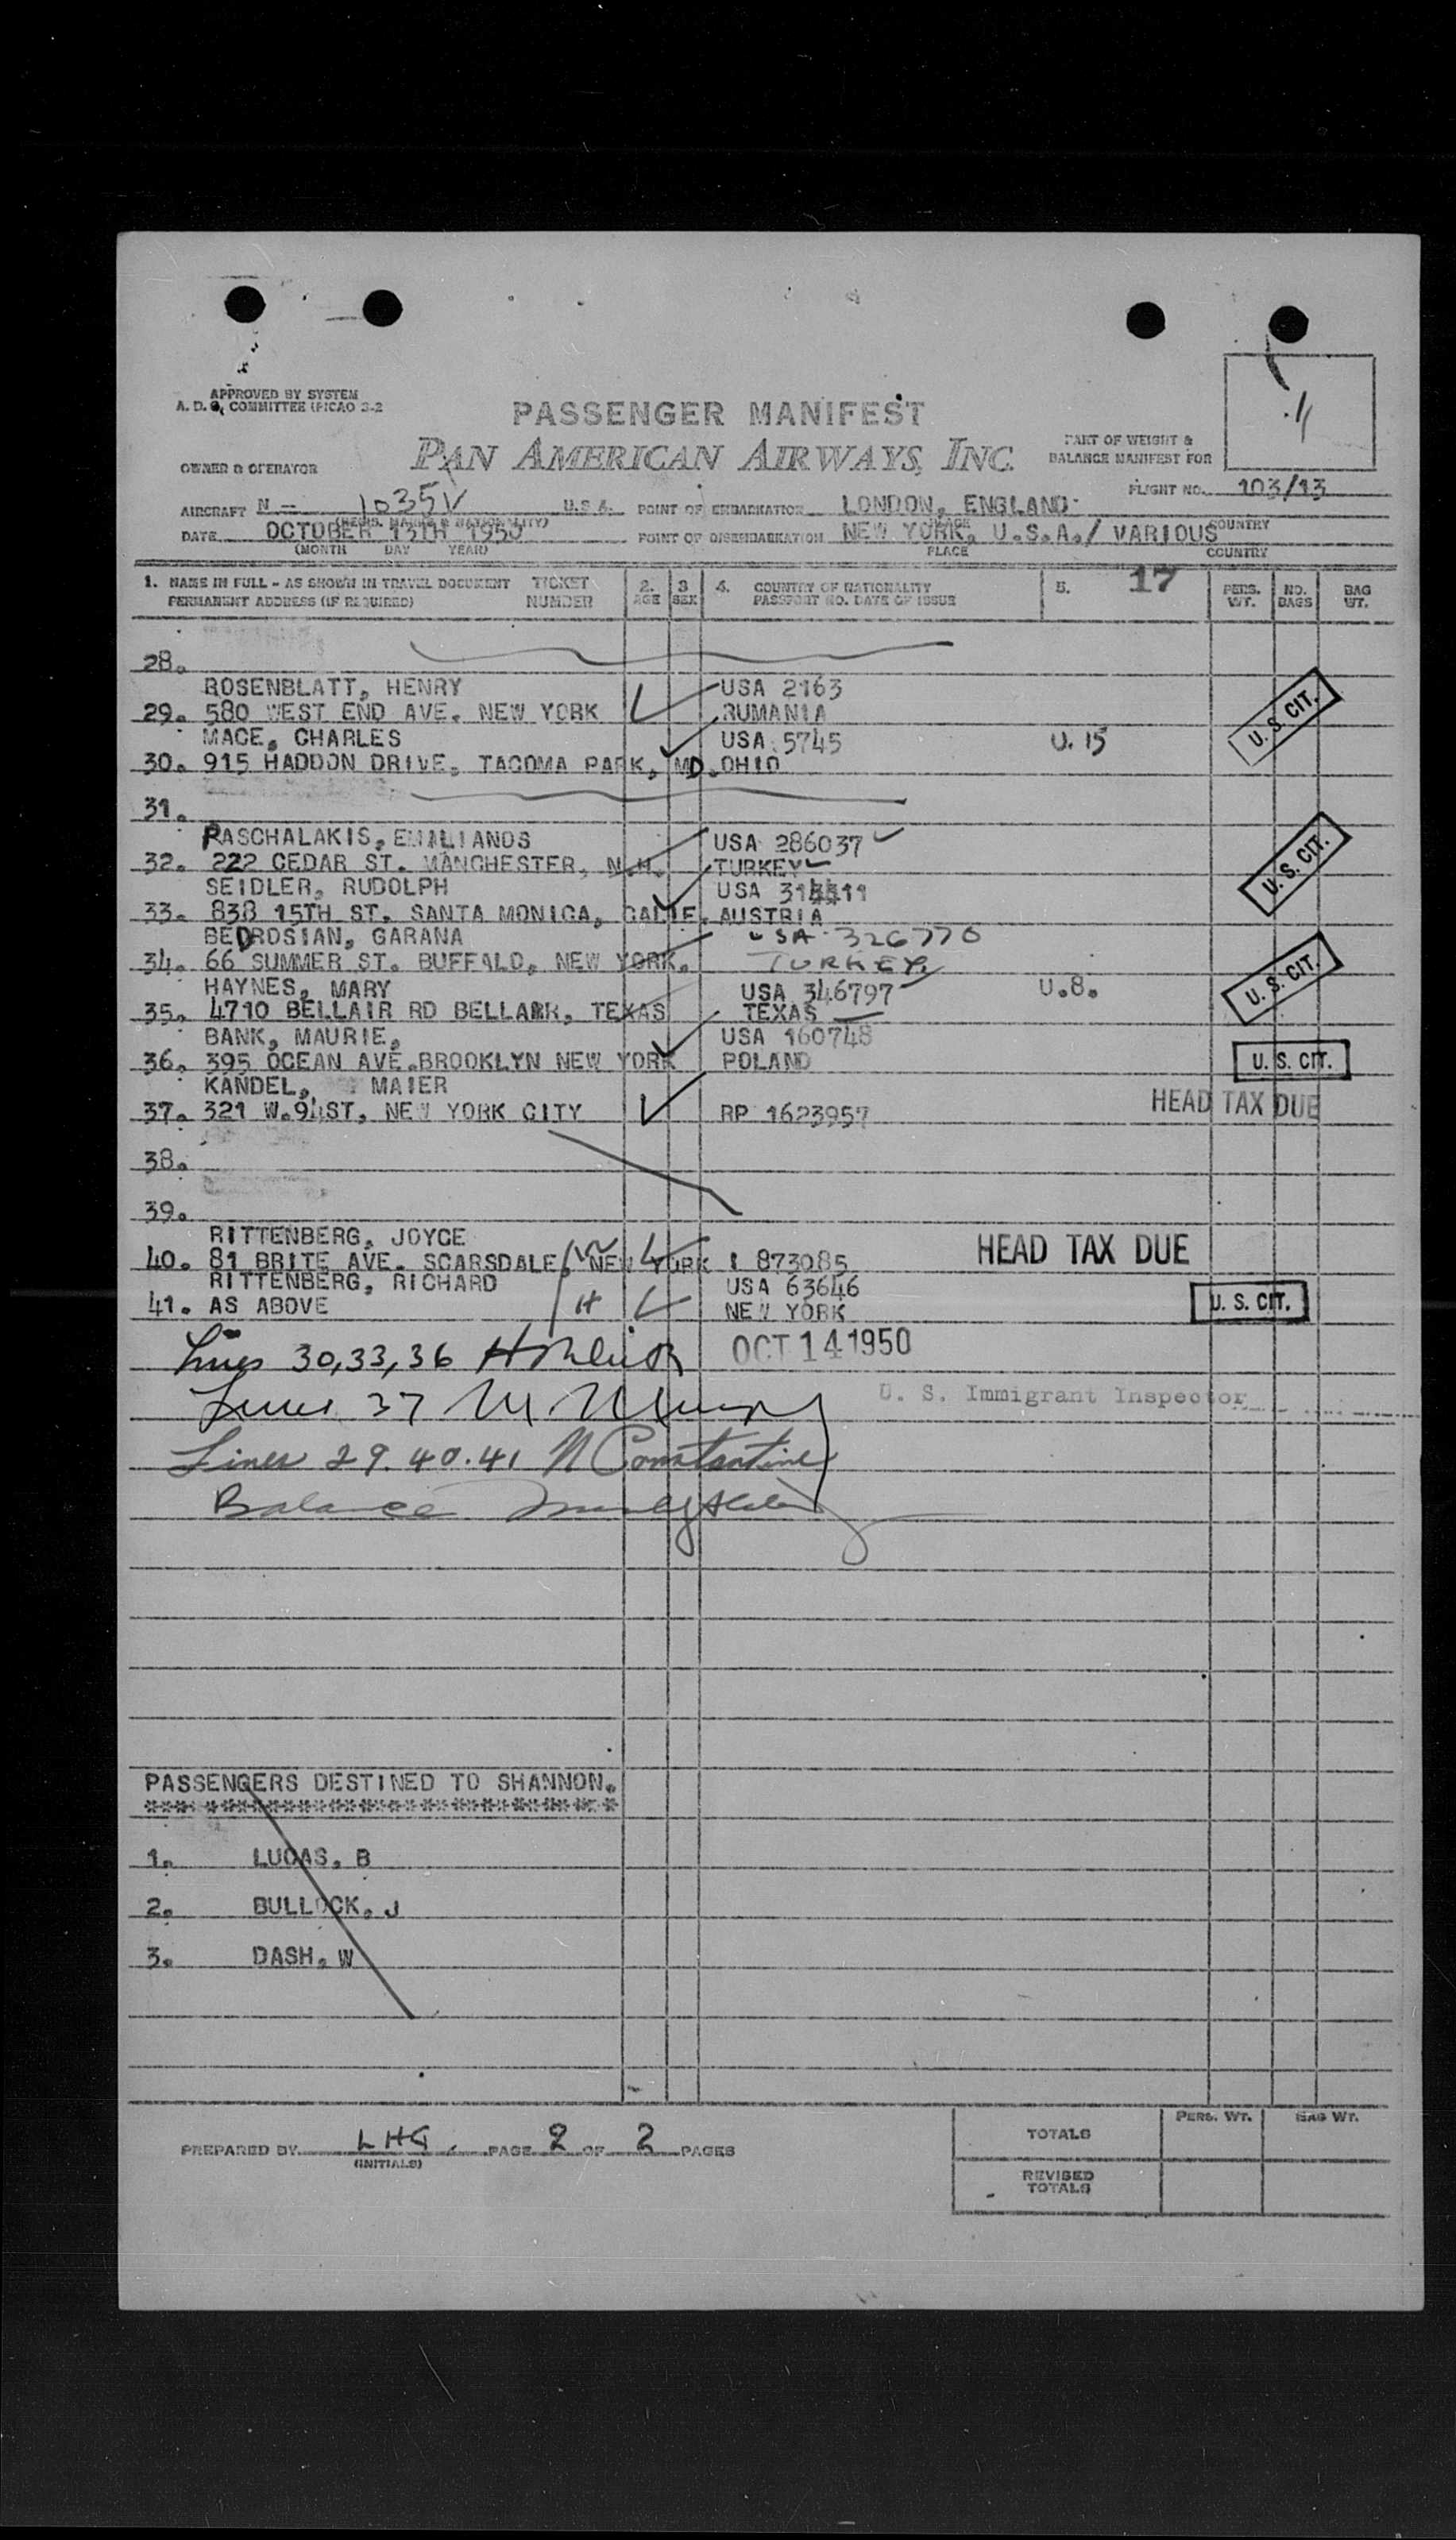 APPROVED BY SYSTEM
A. D. O. COMMITTEE (PICAO 3-2
PASSENGER MANIFEST
PAN AMERICAN AIRWAYS, INC.
PART OF WEIGHT &
BALANCE MANIFEST FOR
OWNER & OPERATOR
FLIGHT NO. 103/13
AIRCRAFT N - 1035V U.S.A. POINT OF EMBARKATION LONDON, ENGLAND
(REGIS. MARKS & NATIONALITY) PLACE COUNTRY
DATE OCTOBER 13TH 1950 POINT OF DISEMBARKATION NEW YORK, U.S.A./ VARIOUS
(MONTH DAY YEAR) PLACE COUNTRY
1. NAME IN FULL - AS SHOWN IN TRAVEL DOCUMENT TICKET 2. 3 4. COUNTRY OF NATIONALITY 5. 17 PERS. NO. BAG
PERMANENT ADDRESS (IF REQUIRED) NUMBER AGE SEX PASSPORT NO. DATE OF ISSUE WT. BAGS WT.
28.
ROSENBLATT, HENRY USA 2163
29. 580 WEST END AVE. NEW YORK RUMANIA U. S. CIT.
MACE, CHARLES USA 5745 U. 15
30. 915 HADDON DRIVE, TACOMA PARK, MD. OHIO
31.
PASCHALAKIS, EMALIANOS USA 286037
32. 222 CEDAR ST. MANCHESTER, N.H. TURKEY U. S. CIT.
SEIDLER, RUDOLPH USA 314411
33. 838 15TH ST. SANTA MONICA, CALIF. AUSTRIA
BEDROSIAN, GARANA USA 326770
34. 66 SUMMER ST. BUFFALO, NEW YORK. TURKEY U. S. CIT.
HAYNES, MARY USA 346797 U.8.
35. 4710 BELLAIR RD BELLAIR, TEXAS TEXAS
BANK, MAURIE, USA 160748
36. 395 OCEAN AVE.BROOKLYN NEW YORK POLAND U. S. CIT.
KANDEL, MAIER
37. 321 W.94ST, NEW YORK CITY RP 1623957 HEAD TAX DUE
38.
39.
RITTENBERG, JOYCE
40. 81 BRITE AVE. SCARSDALE, NEW YORK I 873085 HEAD TAX DUE
RITTENBERG, RICHARD USA 63646
41. AS ABOVE H NEW YORK U. S. CIT.
Lines 30,33,36 OCT 14 1950
Lines 37 U. S. Immigrant Inspector
Lines 29.40.41 N Constantine
Balance
PASSENGERS DESTINED TO SHANNON.
1. LUCAS, B
2. BULLOCK, J
3. DASH, W
PERS. WT. BAG WT.
TOTALS
PREPARED BY LHG. PAGE 2 OF 2 PAGES
(INITIALS)
REVISED
TOTALS